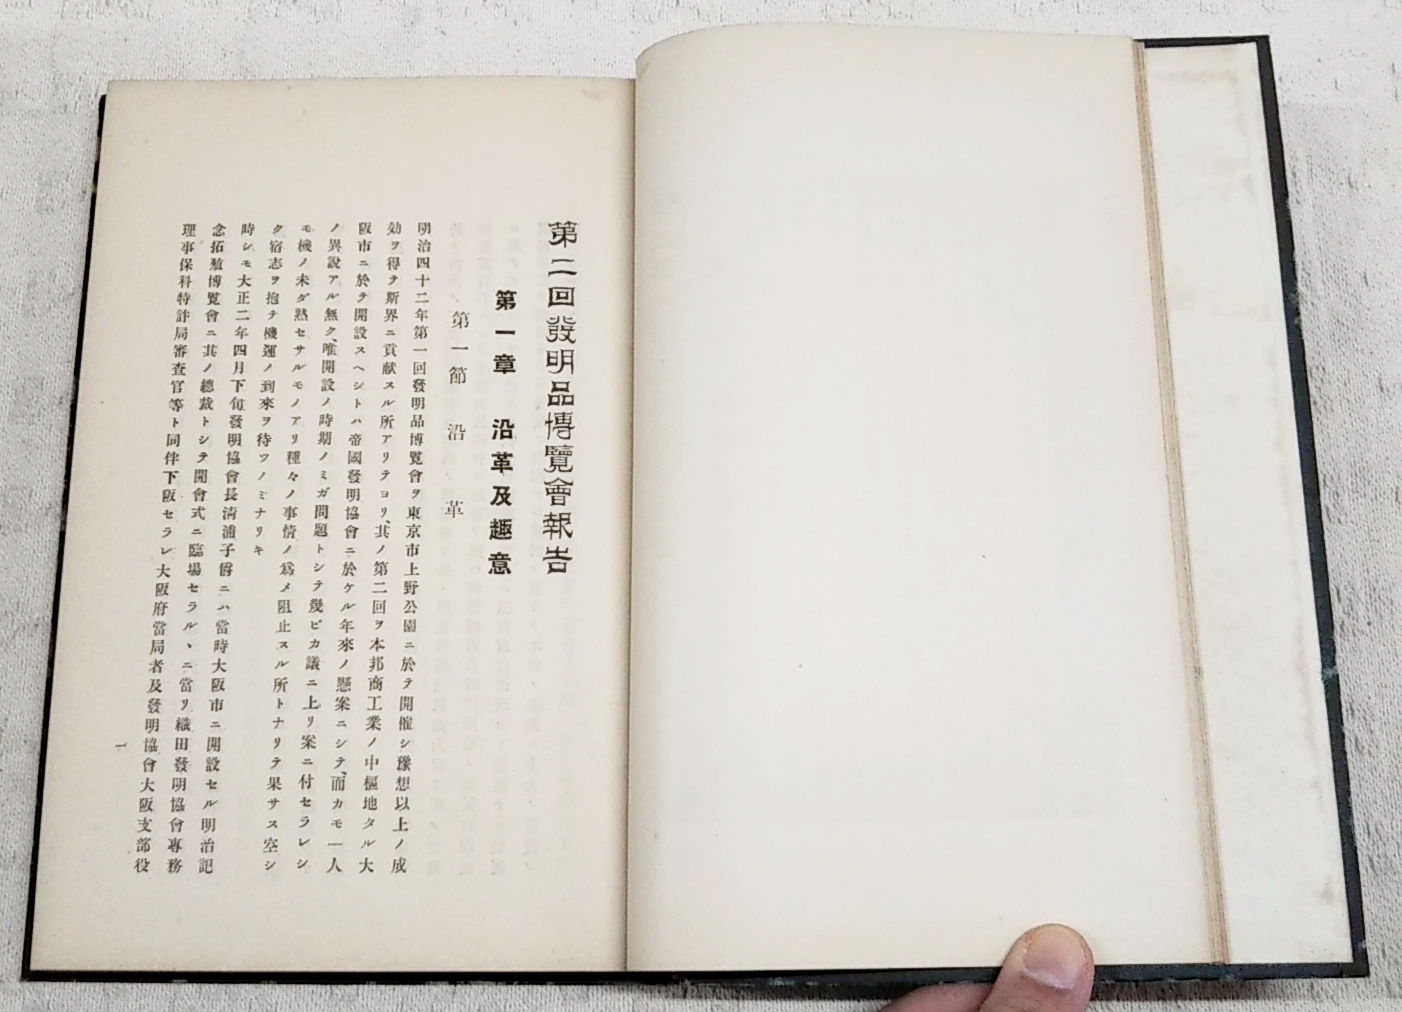 第二回發明品博覽會報告
第一章　沿革及趣意
第一節　沿　革
明治四十二年第一回發明品博覽會ヲ東京市上野公園ニ於テ開催シ豫想以上ノ成
効ヲ得テ斯界ニ貢献スル所アリテヨリ、其ノ第二回ヲ本邦商工業ノ中樞地タル大
阪市ニ於テ開設スヘシトハ帝國發明協會ニ於ケル年來ノ懸案ニシテ、而カモ一人
ノ異說アル無ク、唯開設ノ時期ノミガ問題トシテ幾ビカ議ニ上リ案ニ付セラレシ
モ機ノ未ダ熟セサルモノアリ種々ノ事情ノ爲メ阻止スル所トナリテ果サス空シ
ク宿志ヲ抱テ機運ノ到來ヲ待ツノミナリキ
時シモ大正二年四月下旬發明協會長淸浦子爵ニハ當時大阪市ニ開設セル明治記
念拓殖博覽會ニ其ノ總裁トシテ開會式ニ臨場セラルヽニ當リ織田發明協會專務
理事保科特許局審査官等ト同伴下阪セラレ大阪府當局者及發明協會大阪支部役
一